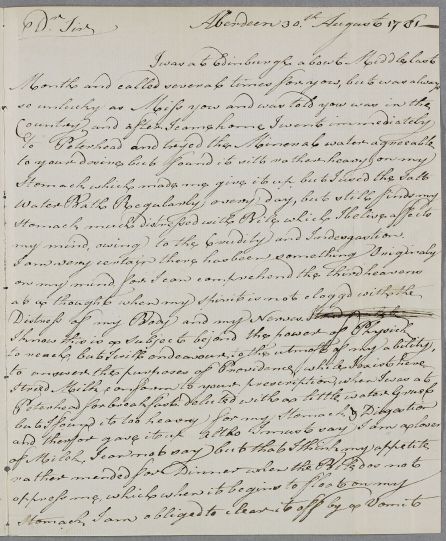 Dr. Sir Aberdeen 30.th August 1781
I was at Edinburgh about Middle last
Month and called several times for yow, but was always
so unlucky as Miss yow and was told yow was in the
Country, and after I came home I went immediately
to Peterhead and tryed the Mineral water agreeable
to your desire but found it sitt rather heavy on my
Stomach which made me give it up, but I used the Salt
Water Bath Regularly every day, but still finds my
Stomach much distressed with Bile which I belive affects
my mind, owing to the Crudity and Indegastion
I am very certain there has been something Originaly
on my mind for I can comprehend the third heavens
as a thought when my spirit is not clogg'd with the
Distress of my Body and my Nerves
I know this is a Subject beyond the power of Physick
to reach, but I will endeavour to the utmost of my ability
to answer the purposes of Providence, while I exist here
I tryed Milk conform to your prescription when I was at
Peterhead for breakfast diluted with a little water Gruel
but found it too heavy for my Stomach & Digastion
and therfor gave it up altho I must say I am a lover
of Milk, I can not say but that I think my appetite
rather mended for Dinner when the Bile does not
oppress me, which when it begins to float on my
Stomach, I am obliged to clear it off by a Vomit